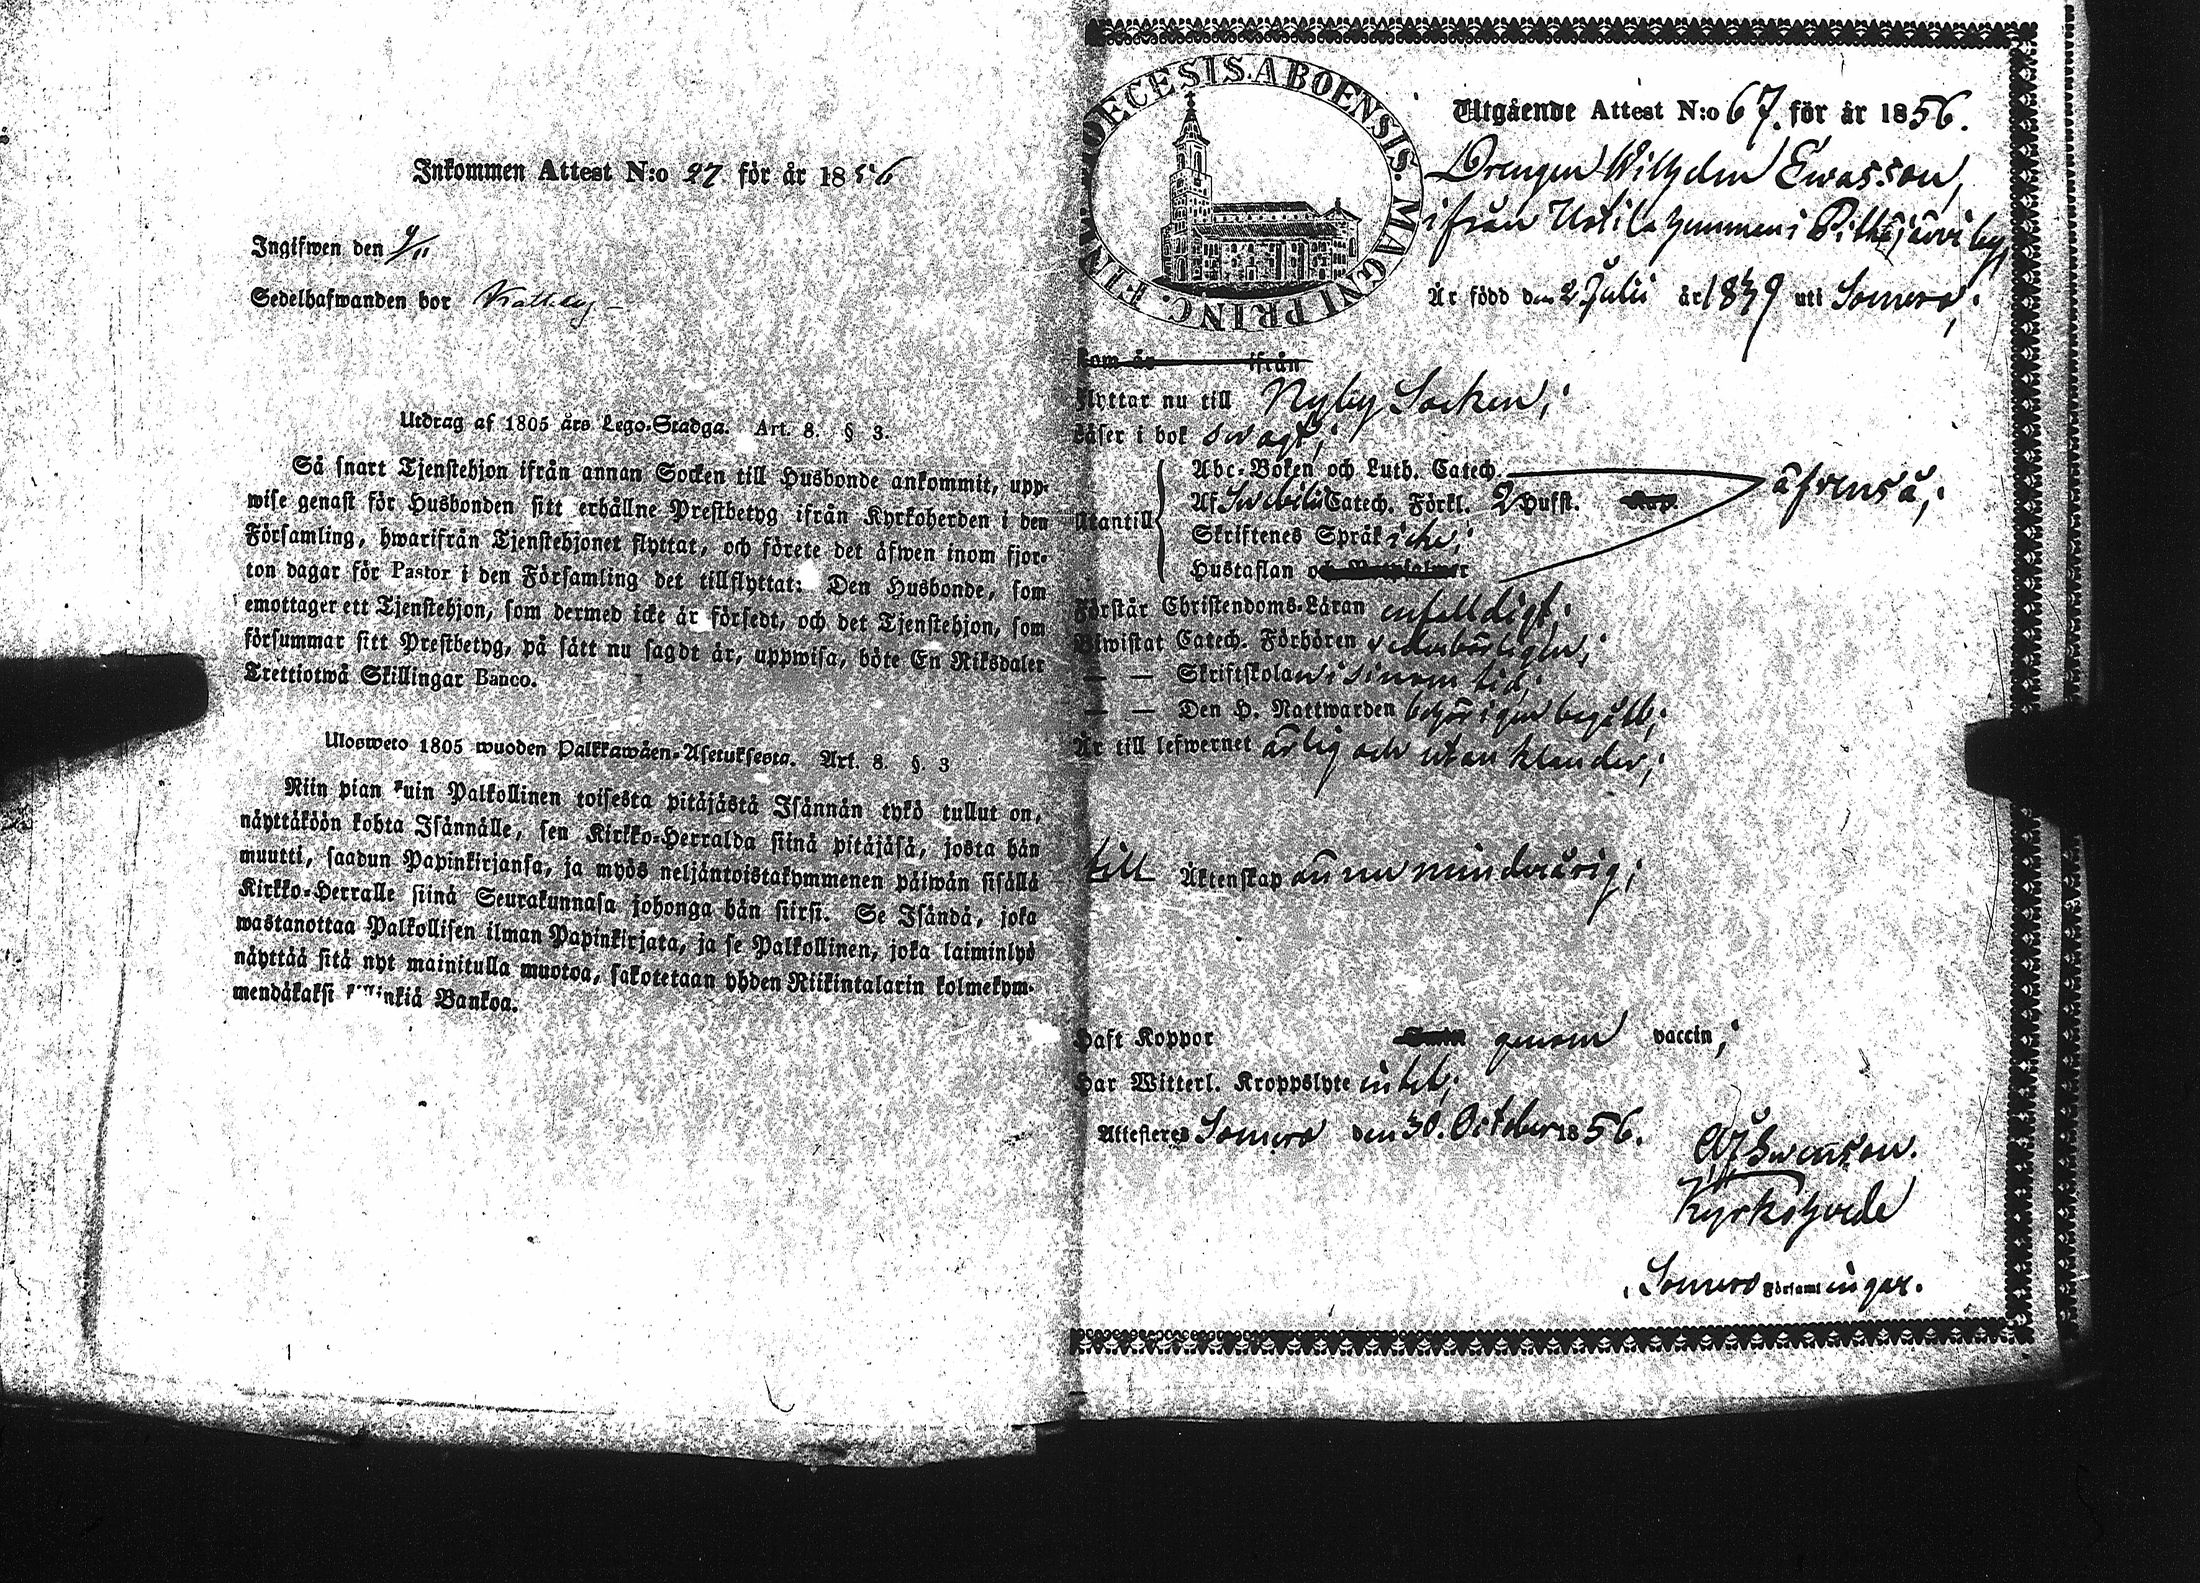 Inkommen Attest N:o 27 för år 1856
Ingifwen den 9/11
Sedelhafwanden bor
Utdrag af 1805 års Lego-Stadga. Art. 8. § 3.
Så snart Tjenstehjon ifrån annan Socken till Husbonde ankommit, upp-
wise genast för Husbonden sitt erhållne Prestbetyg ifrån Kyrkoherden i den
Församling, hwarifrån Tjenstehjonet flyttat, och förete det äfwen inom fjor-
ton dagar för Pastor i den Församling det tillflyttat: Den Husbonde, som
emottager ett Tjenstehjon, som dermed icke är försedt, och det Tjenstehjon, som
försummar sitt Prestbetyg, på sätt nu sagdt är, uppwisa, böte En Riksdaler
Trettiotwå Skillingar Banco.
Ulosweto 1805 wuoden Palkkawäen-Asetuksesta. Art. 8. §. 3
Niin pian kuin Palkollinen toisesta pitäjästä Isännän tykö tullut on,
näyttäköön kohta Isännälle, sen Kirkko-Herralda siinä pitäjäsä, josta hän
muutti, saadun Papinkirjansa, ja myös neljäntoistakymmenen päiwän sisällä
Kirkko-Herralle siinä Seurakunnasa johonga hän siirsi. Se Isändä, joka
wastanottaa Palkollisen ilman Papinkirjata, ja se Palkollinen, joka laiminlyö
näyttää sitä nyt mainitulla muotoa, sakotetaan yhden Riikintalarin kolmekym-
mendäkaksi killinkiä Bankoa.
DIOECESIS. ABOENSIS. MAGNI PRINC. FINL.
Utgående Attest N:o 67. för år 1856.
Drengen Wilhelm Ewasson,
ifrån Hemmen i by
Är född den 2 Juli år 1839 uti Somero;
kom år ifrån
Flyttar nu till Nyby Socken;
Läser i bok swagt;
Abc-Boken och Luth. Catech.
Utantill Af Swebilii Catech. Förkl. 2 Hufst. Kap. äfvenså;
Skriftenes Språk icke;
Hustaflan och
Förstår Christendoms-Läran enfelldigt;
Biwistat Catech. Förhören vederbörligen;
— — Skriftskolan i sinom tid;
— — Den H. Nattwarden behörigen begått;
Är till lefwernet ärlig och utan klander;
till Äktenskap ännu minderårig;
Haft Koppor genom vaccin;
Har Witterl. Kroppslyte intet;
Attesteres Somero den 30. October 1856.
Swenson.
Kyrkoherde
i Somero Församlingar.